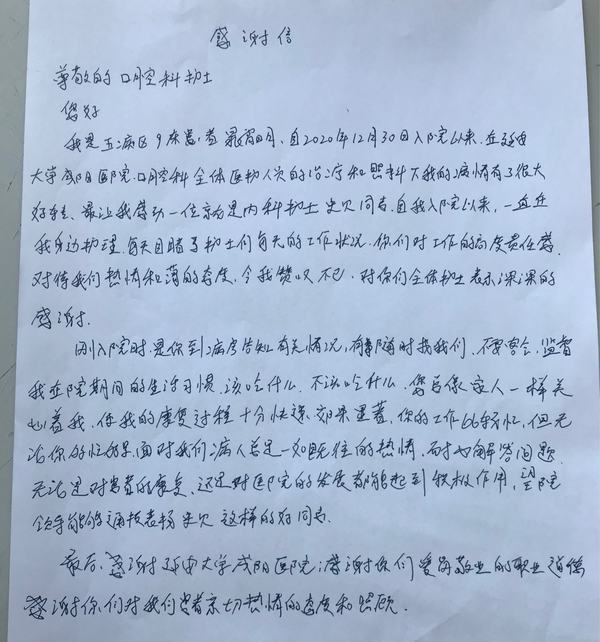 感谢信
尊敬的口腔科护士
您好
我是五病区9床患者 自2020年12月30日入院以来,在延安
大学咸阳医院口腔科全体医护人员的治疗和照料下我的病情有了很大
好转、最让我感动一位就是内科护士史贝同志,自我入院以来,一直在
我身边护理,每天目睹了护士们每天的工作状况.你们对工作的高度责任
对待我们热情和蔼的态度,令我赞叹不已.对你们全体护士表示深深的
感谢.
因入院时.是你到病房告知有关情况,有事随时找我们、不要客气.监督
我在院期间的生活习惯、该吃什么.不该吃什么.您像家人一样关
心着我、使我的康复过程十分快速.效果显著.你的工作比较忙,但无
论你的忙碌.面对我们病人总是一如既往的热情、耐心解答问题.
无论是对患者的康复、还是对医院的发展都能起到积极作用,望院
领导能够通报表扬史贝 这样的好同志.
最后、感谢延安大学咸阳医院;感谢你们爱岗敬业的职业道德
感谢你们对我们患者亲切热情的态度和照顾.